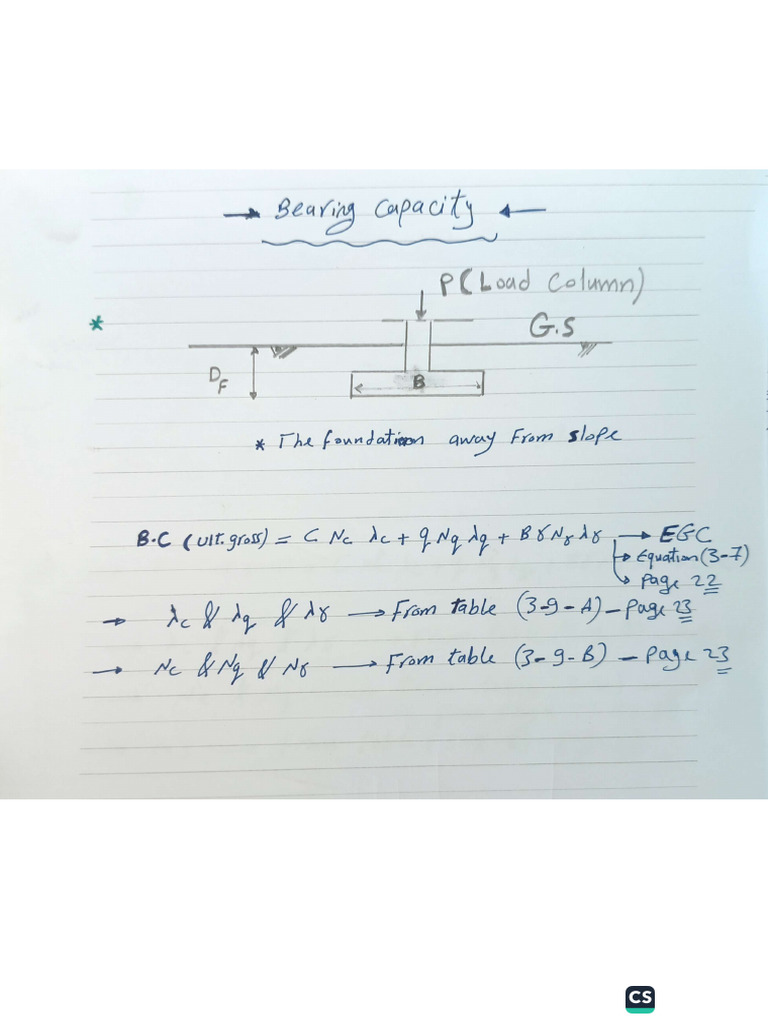 → Bearing Capacity ←
P(Load Column)
*
G.S
DF
B
* The foundation away From slope
B.C (ult.gross) = C Nc λc + q Nq λq + B γ Nγ λγ → EGC
→ Equation (3-7)
→ Page 22
→ λc & λq & λγ → From table (3-9-A) - Page 23
→ Nc & Nq & Nγ → From table (3-9-B) - Page 23
CS